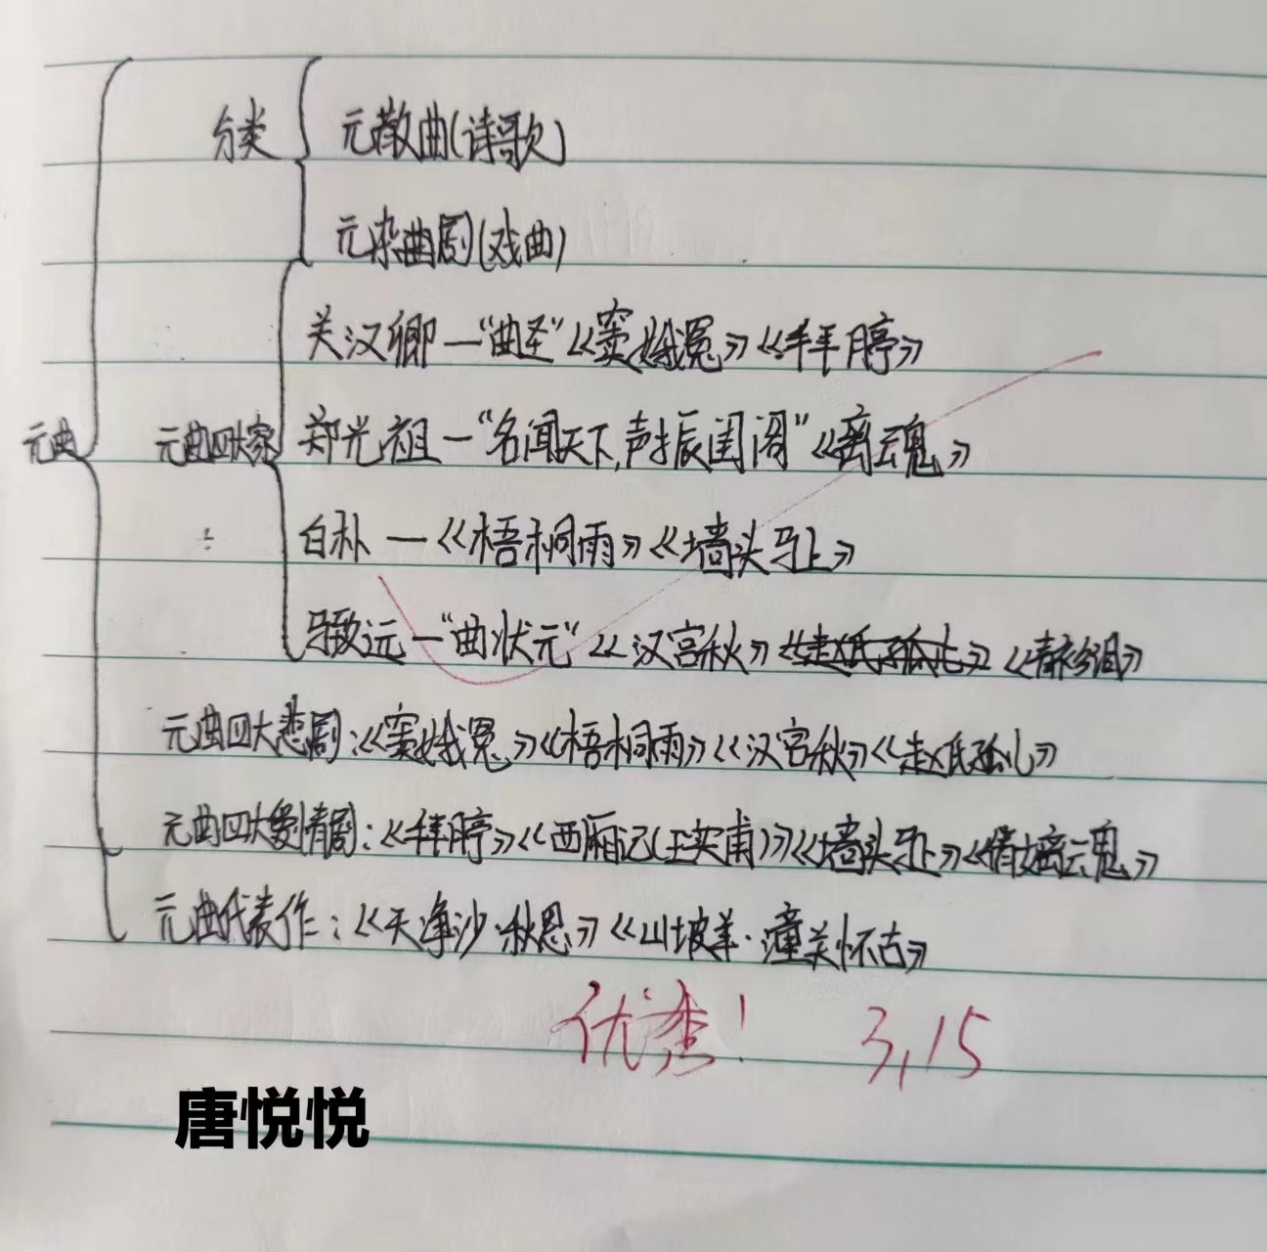 分类
元散曲(诗歌)
元杂曲剧(戏曲)
关汉卿—“曲圣”《窦娥冤》《拜月亭》
元曲
元曲四大家
郑光祖—“名闻天下,声振闺阁”《离云魂》
白朴—《梧桐雨》《墙头马上》
马致远—“曲状元”《汉宫秋》《赵氏孤儿》《青衫泪》
元曲四大悲剧:《窦娥冤》《梧桐雨》《汉宫秋》《赵氏孤儿》
元曲四大爱情剧:《拜月亭》《西厢记(王实甫)》《墙头马上》《倩女离云魂》
元曲代表作:《天净沙·秋思》《山坡羊·潼关怀古》
优秀! 3,15
唐悦悦